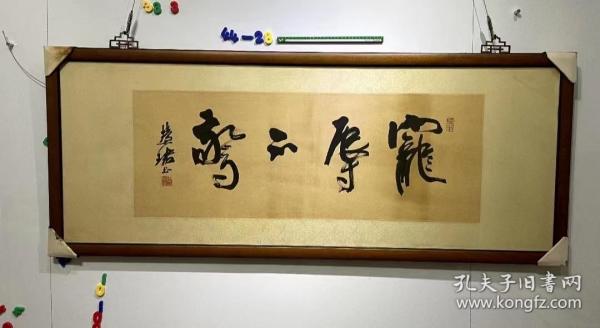 仙-28
寵辱不驚
孔夫子旧書网
www.kongfz.com